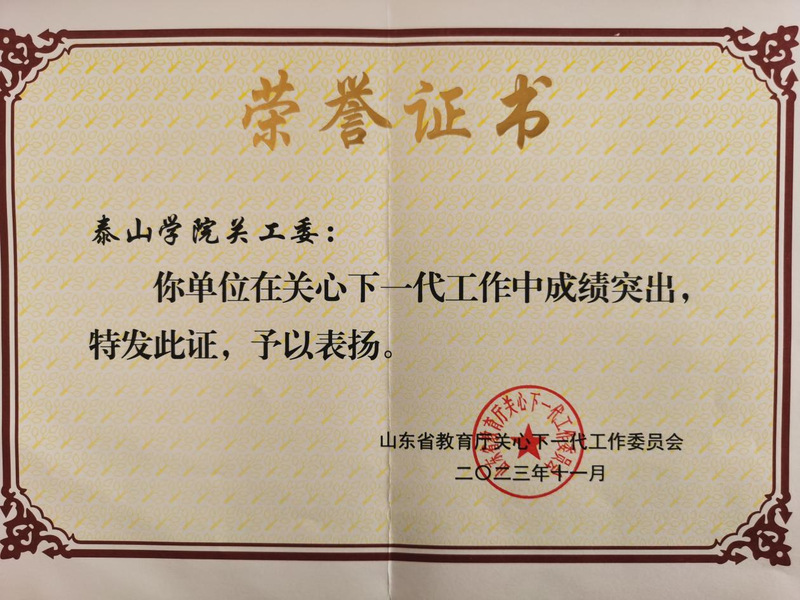 荣誉证书
泰山学院关工委：
你单位在关心下一代工作中成绩突出，
特发此证，予以表扬。
山东省教育厅关心下一代工作委员会
二〇二三年十一月
山东省教育厅关心下一代工作委员会